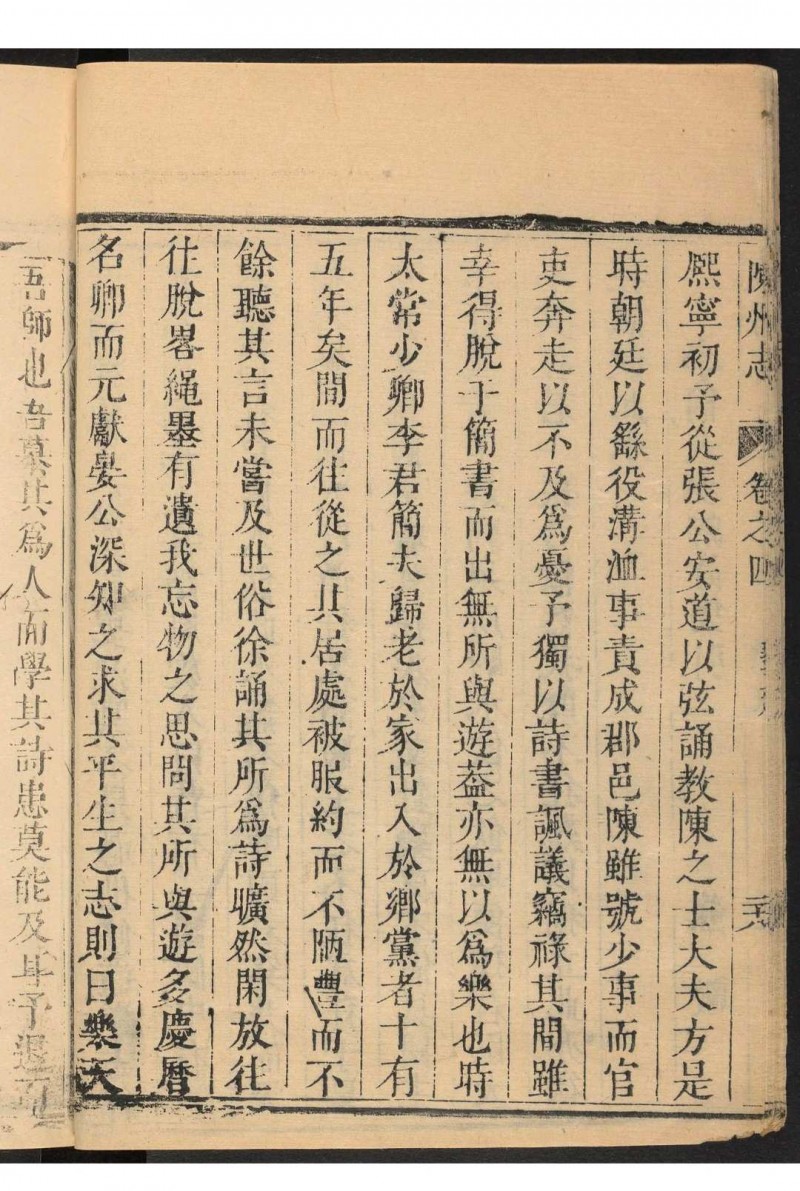 陳州志 卷之四
熈寧初予從張公安道以弦誦教陳之士大夫方是
時朝廷以繇役溝洫事責成郡邑陳雖號少事而官
吏奔走以不及為憂予獨以詩書諷議竊祿其間雖
幸得脫于簡書而出無所與遊葢亦無以為樂也時
太常少卿李君簡夫歸老於家出入於鄉黨者十有
五年矣間而往從之其居處被服約而不陋豐而不
餘聽其言未嘗及世俗徐誦其所為詩曠然閑放往
往脫畧繩墨有遺我忘物之思問其所與遊多慶曆
名卿而元獻晏公深知之求其平生之志則曰樂天
吾師也吾慕其為人而學其詩患莫能及耳予退而